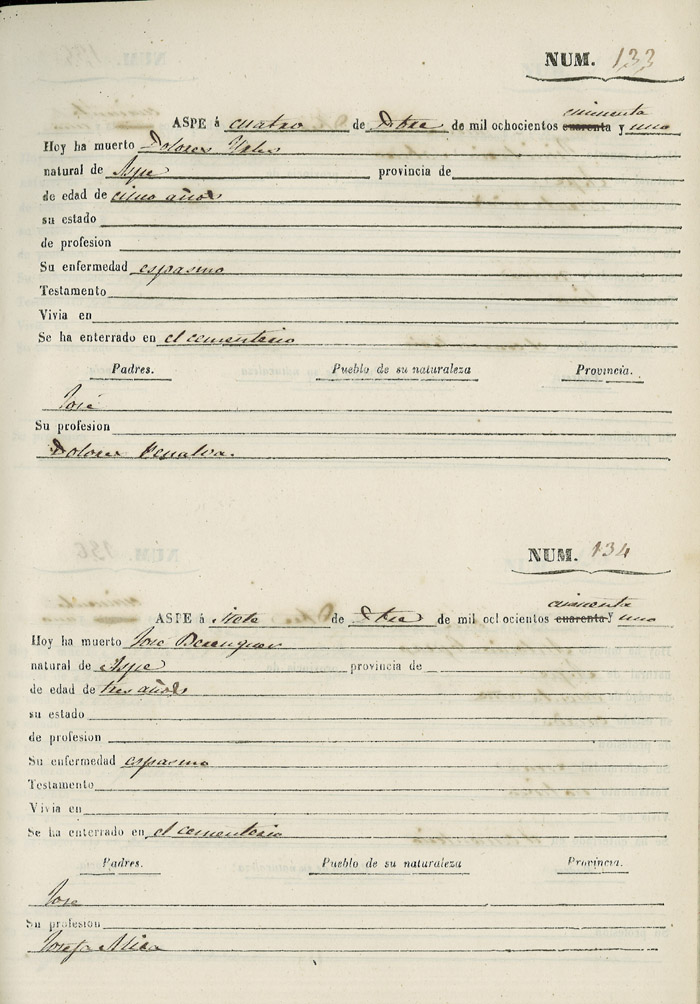 NUM. 133
cincuenta
ASPE á cuatro de Dbre de mil ochocientos cuarenta y uno
Hoy ha muerto Dolores
natural de Aspe provincia de
de edad de cinco años
su estado
de profesion
Su enfermedad espasmo
Testamento
Vivia en
Se ha enterrado en el cementerio
Padres. Pueblo de su naturaleza Provincia.
José
Su profesion
Dolores Penalva.
NUM. 134
cincuenta
ASPE á siete de Dbre de mil ochocientos cuarenta y uno
Hoy ha muerto José Berenguer
natural de Aspe provincia de
de edad de tres años
su estado
de profesion
Su enfermedad espasmo
Testamento
Vivia en
Se ha enterrado en el cementerio
Padres. Pueblo de su naturaleza Provincia.
José
Su profesion
Josefa Mira